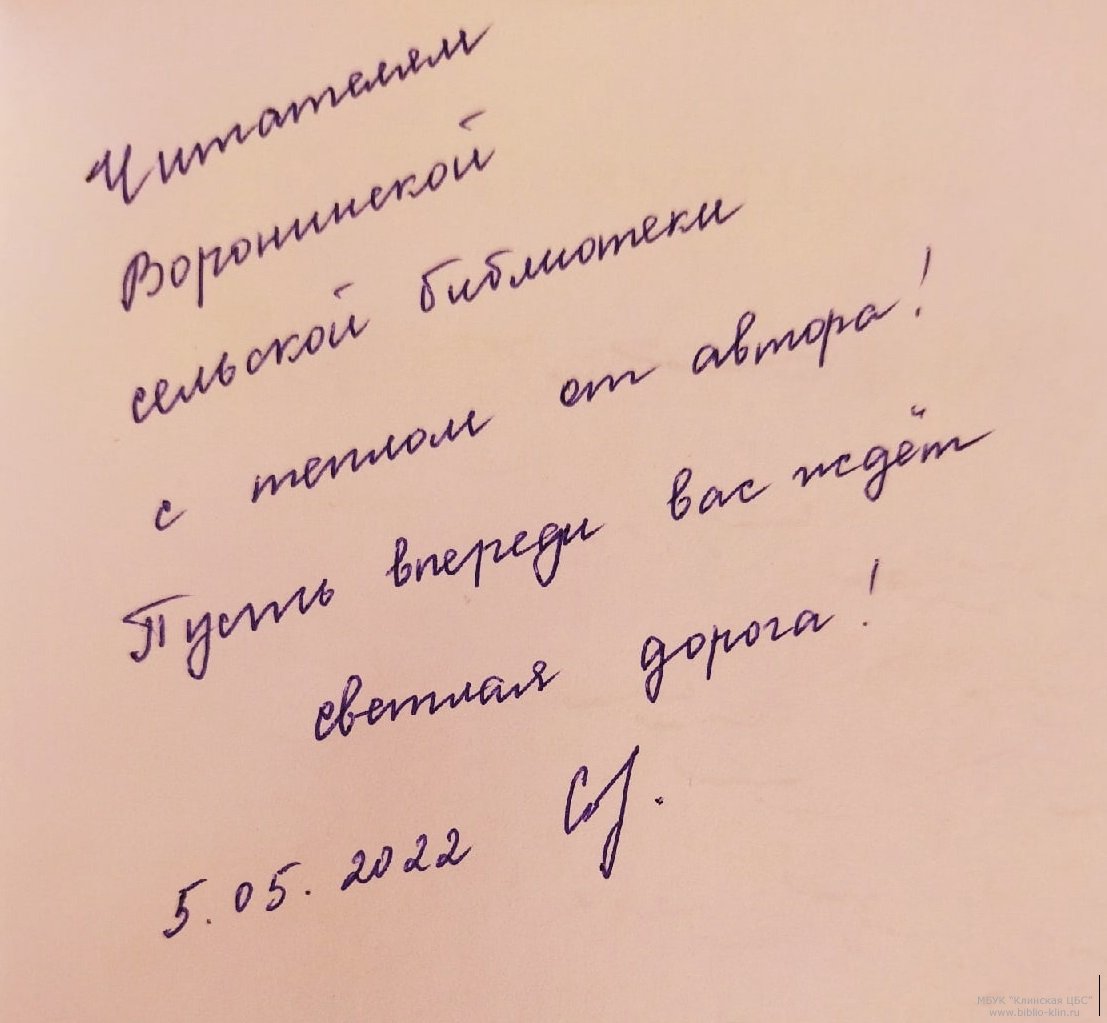 Читателям
Воронинской
сельской библиотеки
с теплом от автора!
Пусть впереди вас ждёт
светлая дорога!
5.05.2022
МБУК "Клинская ЦБС"
www.biblio-klin.ru